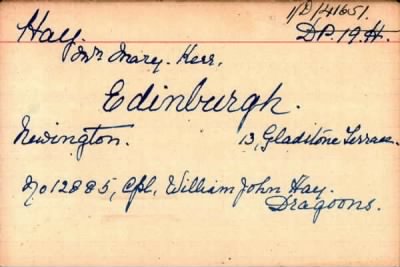 1/D/41651.
Hay. D.P. 19.H.
Mr Mary. Kerr,
Edinburgh.
Newington. 13, Gladstone Terrace.
No 12885, Cpl, William John Hay.
Dragoons.